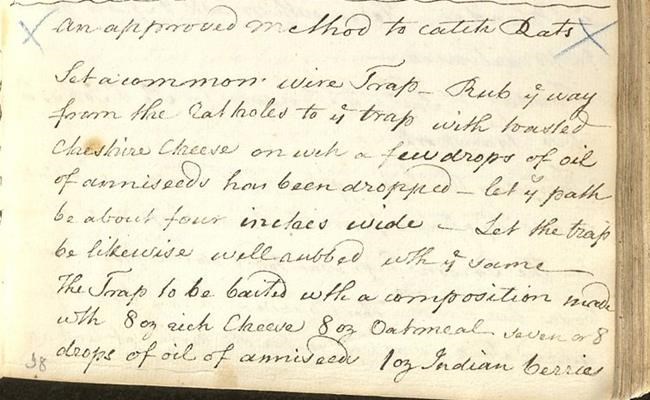 An approved method to catch Rats
Set a common wire Trap – Rub yͤ way
from the Ratholes to yͤ trap with toasted
Cheshire Cheese on wch a few drops of oil
of anniseeds has been dropped – let yͤ path
be about four inches wide – Let the trap
be likewise well rubbed wth yͤ same –
The Trap to be baited wth a composition made
wth 8 oz rich Cheese 8 oz Oatmeal seven or 8
drops of oil of anniseeds 1 oz Indian berries